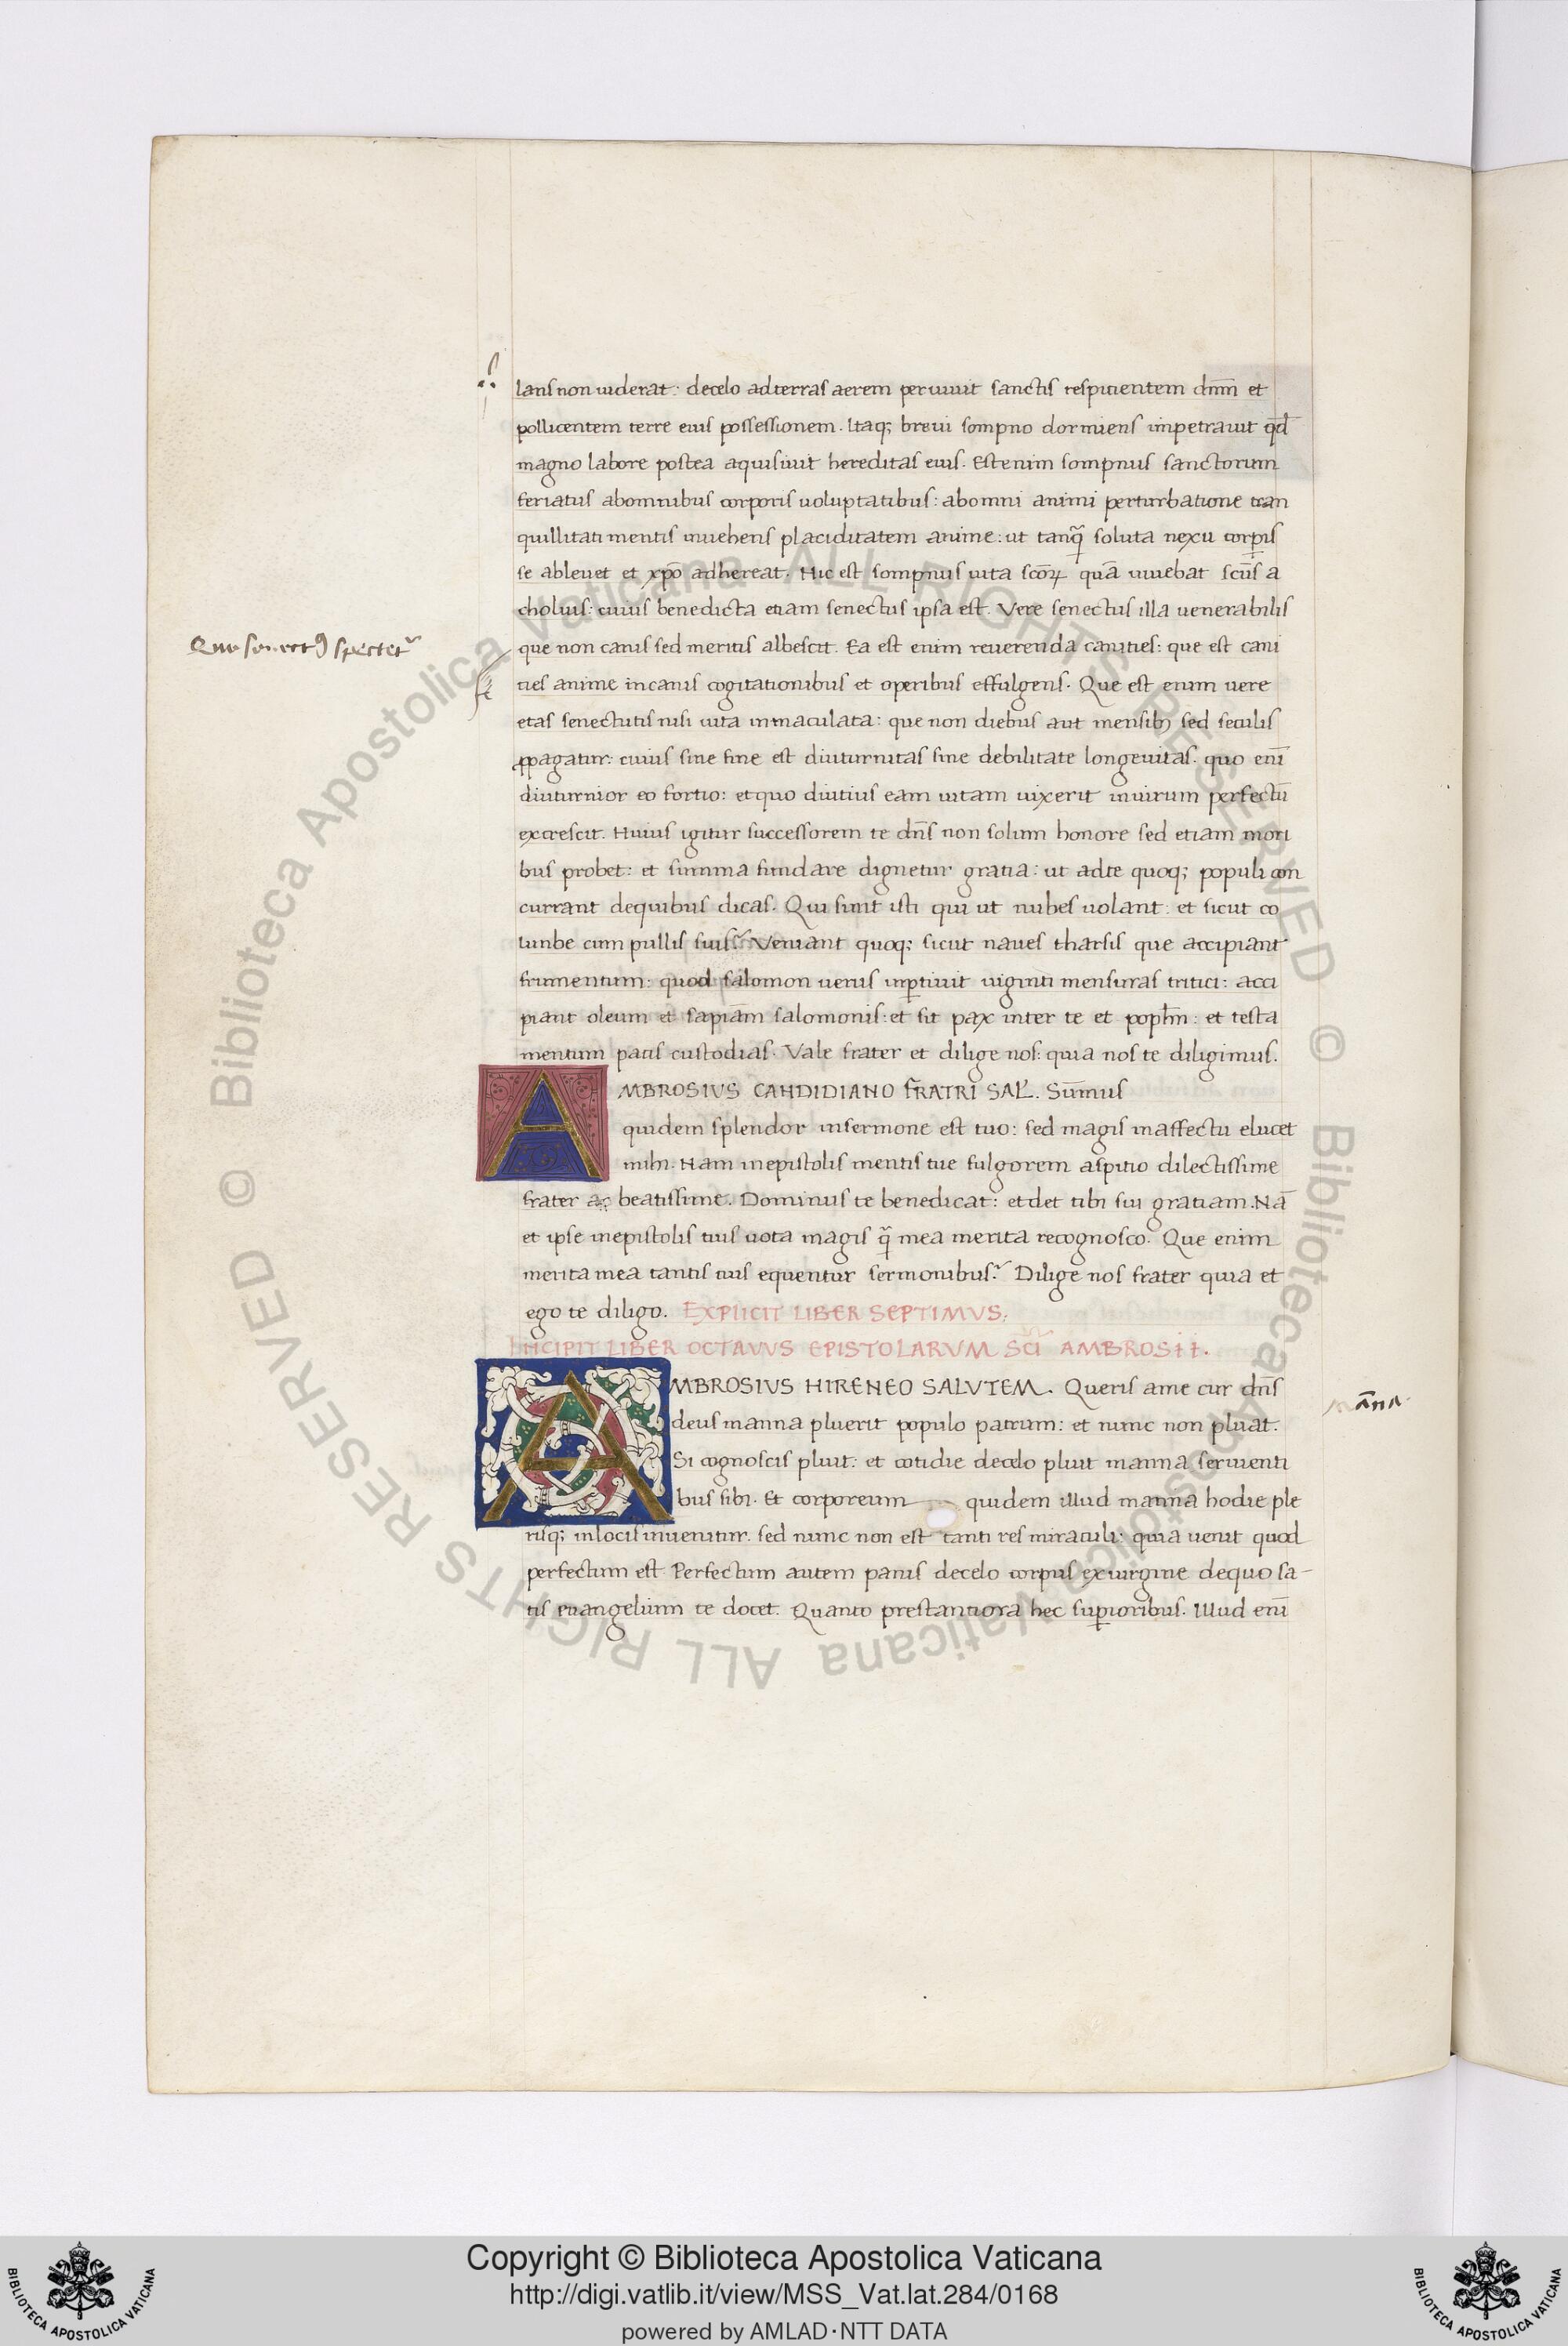 lans non uiderat: decelo adterras aerem per uiuit sanctis respicientem dn̄m et
pollicentem terre eius possessionem. Itaq; breui sompno dormiens impetrauit qd̄
magno labore postea aquisiuit hereditas eius. Est enim sompnus sanctorum
feriatus abomnibus corporis uoluptatibus: abomni animi perturbatione tran
quillitati mentis inuehens placiditatem anime: ut tanq̃ soluta nexu corꝑis
se ableuet et xp̄o adhereat. Hic est sompnus uita sc̄oꝝ quā uiuebat sc̄us a
cholius: cuius benedicta etiam senectus ipsa est. Vere senectus illa uenerabilis
que non canis sed meritis albescit. Ea est enim reuerenda canities: que est cani
Quo senectꝰ spectet᷑
ties anime incanis cogitationibus et operibus effulgens. Que est enim uere
etas senectutis nisi uita inmaculata: que non diebus aut mensibꝫ sed seculis
ꝓpagatur: cuius sine fine est diuturnitas sine debilitate longeuitas. quo eni̅
diuturnior eo fortio: et quo diutius eam uitam uixerit inuirum perfectū
excrescit. Huius igitur successorem te dn̄s non solum honore sed etiam mori
bus probet: et summa fundare dignetur gratia: ut adte quoq; populi con
currant dequibus dicas. Qui sunt isti qui ut nubes uolant: et sicut co
lunbe cum pullis suis? Veniant quoq; sicut naues tharsis que accipiant
frumentum: quod salomon uerus inꝑtiuit uiginti mensuras tritici: acci
piant oleum et sapiam̄ salomonis: et sit pax inter te et popl̄m: et testa
mentum patis custodias. Vale frater et dilige nos: quia nos te diligimus.
AMBROSIVS CANDIDIANO FR̄ATRI SAL̄. Sum̄us
quidem splendor insermone est tuo: sed magis inaffectu elucet
mihi. Nam inepistolis mentis tue fulgorem aspitio dilectissime
frater ac beatissime. Dominus te benedicat: et det tibi sui gratiam. Nā
et ipse inepistolis tuis uota magis q̃ mea merita recognosco. Que enim
merita mea tantis tuis equentur sermonibus? Dilige nos frater quia et
ego te diligo. EXPLICIT LIBER SEPTIMVS:
INCIPIT LIBER OCTAVVS EPISTOLARVM SC̄I AMBROSII.
AMBROSIVS HIRENEO SALVTEM. Queris ame cur dn̄s
deus manna pluerit populo patrum: et nunc non pluat.
māna
Si cognoscis pluit: et cotidie decelo pluit manna seruienti
bus sibi. Et corporeum quidem illud manna hodie ple
risq; inlocis inuenitur. sed nunc non est tanti res miraculi: quia uenit quod
perfectum est. Perfectum autem panis decelo corpus exuirgine dequo sa-
tis euangelium te docet. Quanto prestantiora hec suꝑioribus. Illud eni̅
Copyright © Biblioteca Apostolica Vaticana
http://digi.vatlib.it/view/MSS_Vat.lat.284/0168
powered by AMLAD·NTT DATA
BIBLIOTECA APOSTOLICA VATICANA
BIBLIOTECA APOSTOLICA VATICANA
© Biblioteca Apostolica Vaticana ALL RIGHTS RESERVED © Biblioteca Apostolica Vaticana ALL RIGHTS RESERVED